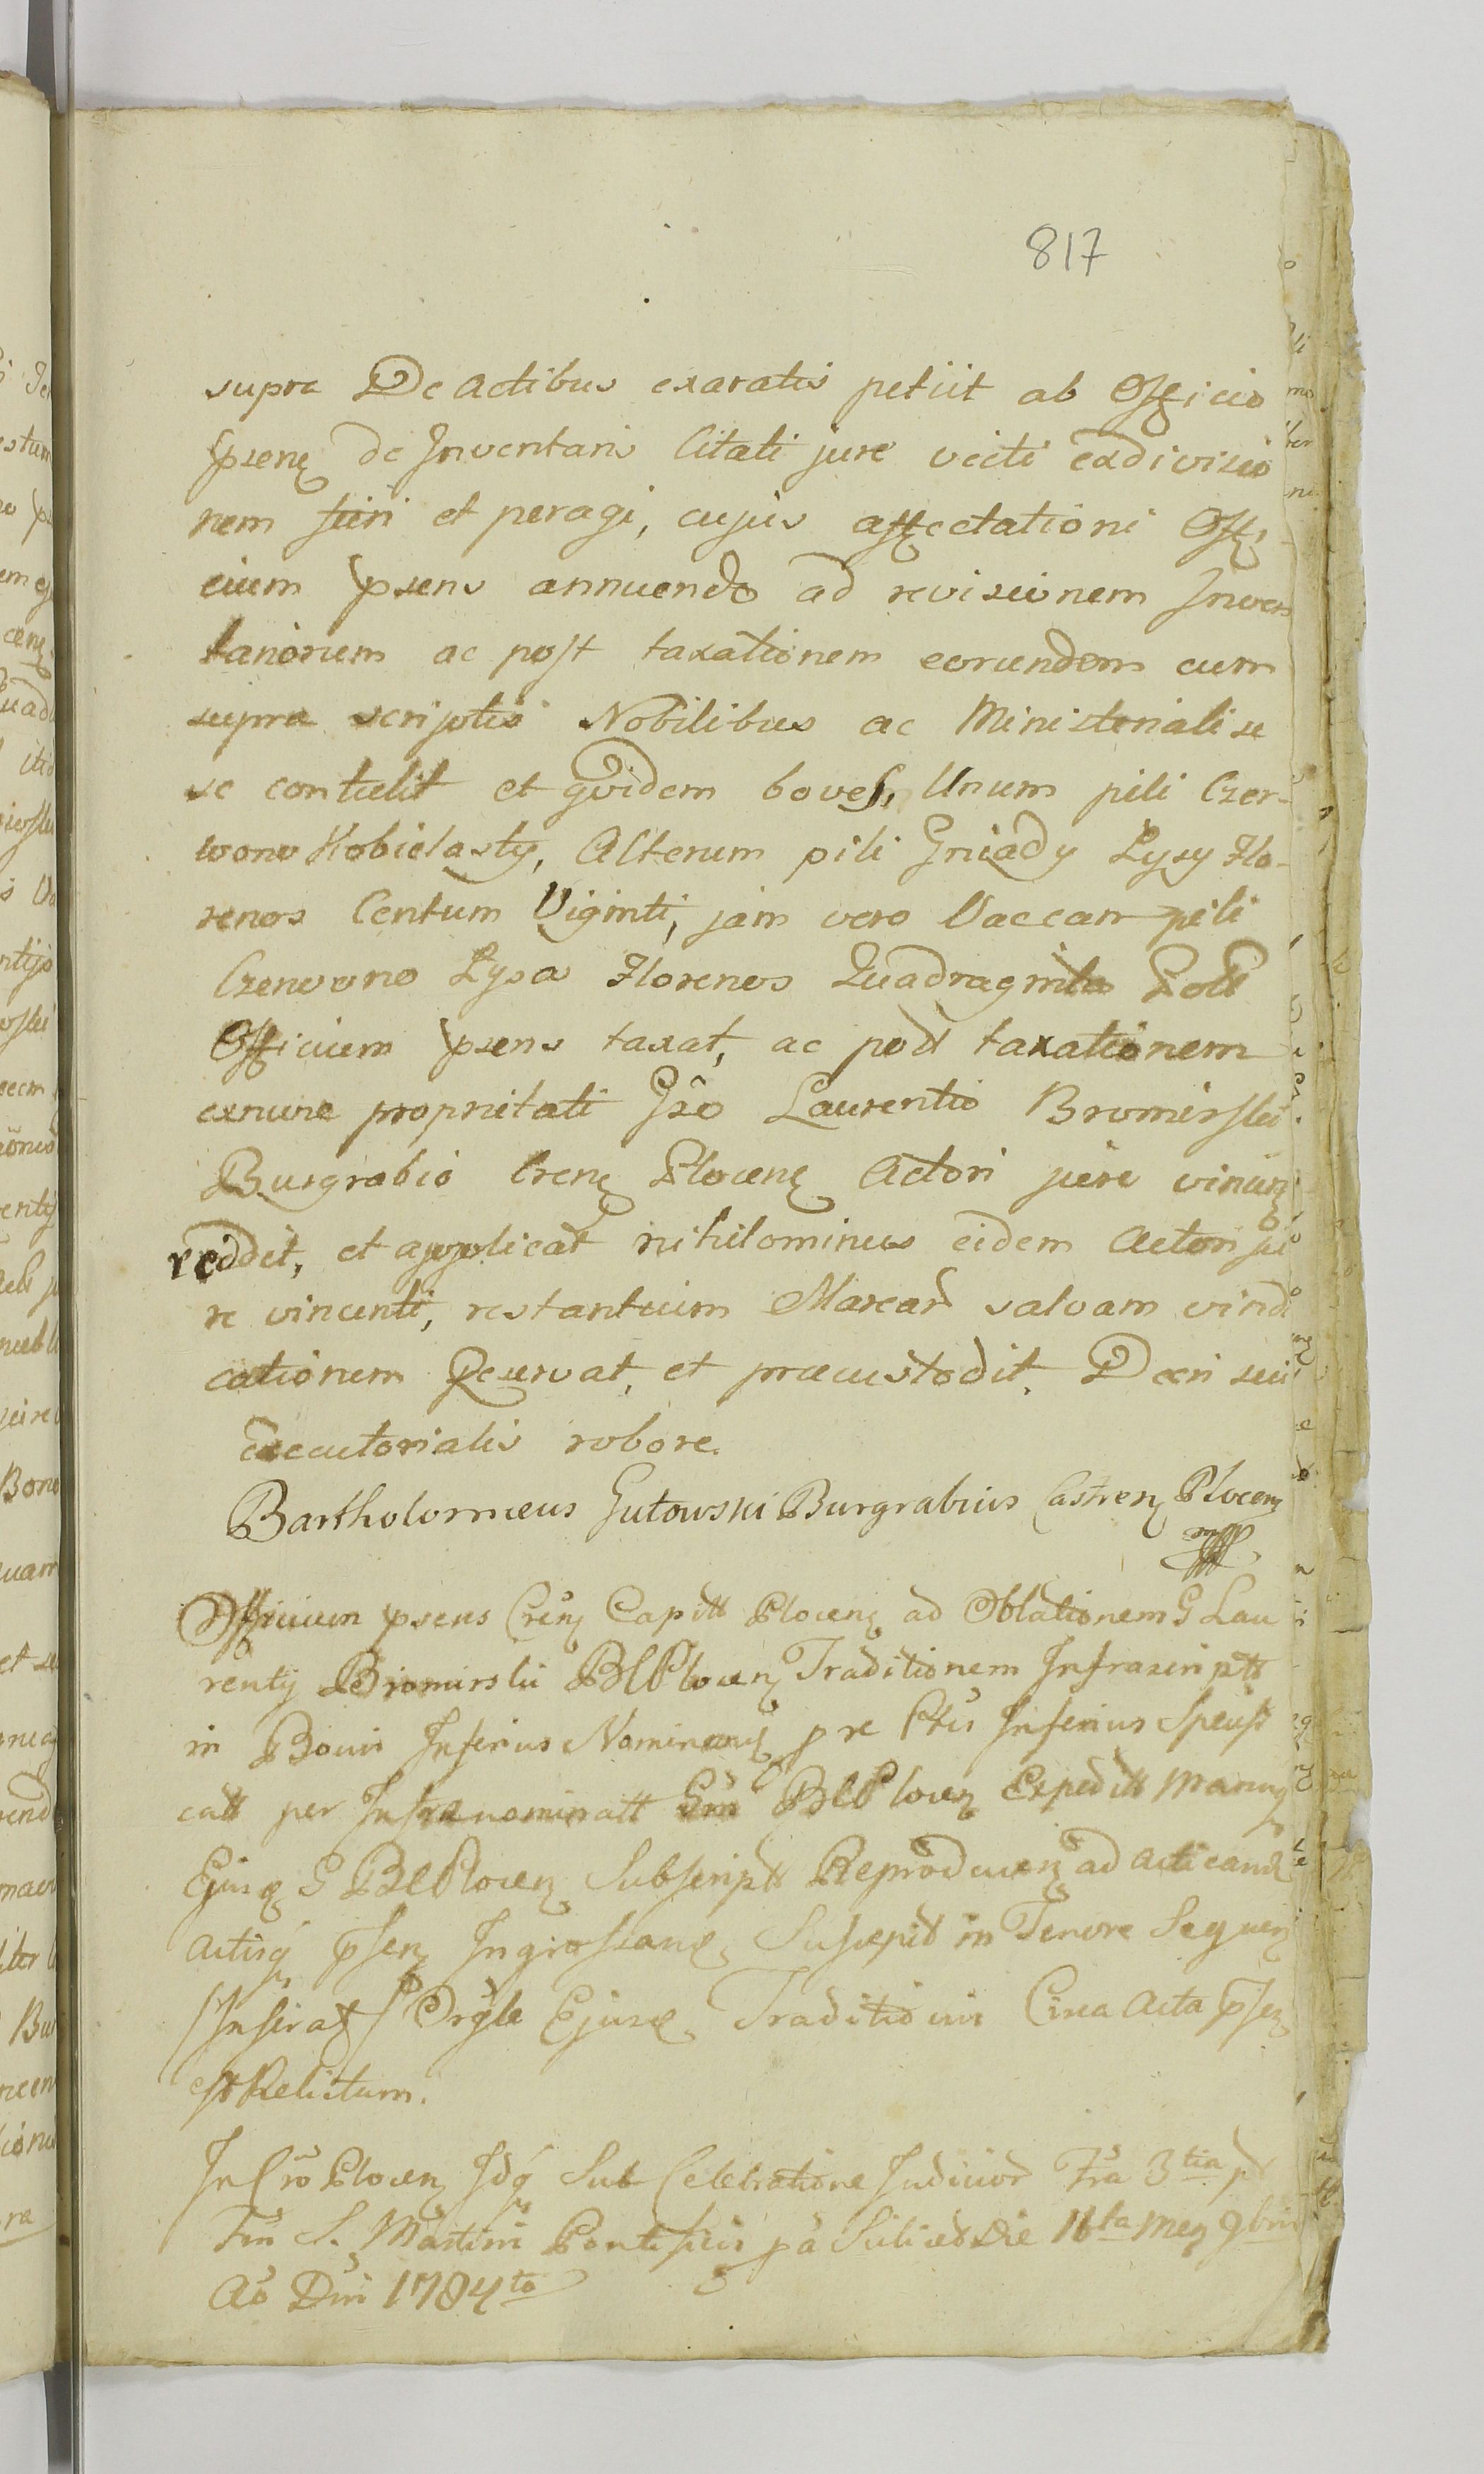 817
supra De actibus exaratis petiit ab Officio
psenȩ de Inventaris Citati jure victi exdivisio
nem fieri et peragi, cujus affectationi Offi-
cium psens annuendo ad revisionem Inven
tariorum ac post taxationem eorundem cum
supra scriptis Nobilibus ac Ministeriali se
se contulit et qvidem boves, Unum pili Czer-
wono Kobielasty, Alterum pili Gniady Lysy Flo-
renos Centum Viginti, jam vero Vaccam pili
Czerwono Lysa Florenos Quadraginta Poll
Officium psens taxat, ac post taxationem
exnunc proprietati Gso Laurentio Bromirski
Burgrabio Crenȩ Plocenȩ Actori jure vincen
reddit, et applicat nihilominus eidem Actori ju
re vincenti, restantium Marcar salvam vindi
cationem Reservat, et præcustodit. Dcri sui
Executorialis robore.
Bartholomæus Gutowski Burgrabius Castren Plocen
mpp
Officium psens Cren Capitt Plocen ad Oblationem G Lau
rentij Bromirski BCPlocen Traditionem Infrascriptt
in Bonis Inferius Nominan p re Ptis Inferius Specifi
catt per Infranominatt Gm BCPlocen Expeditt Manuq
Ejusq G BCPlocen Subscriptt Reproducen ad acticand
actisq psen Ingrossand Suscepit in Tenore Sequen
/Inserat/ Origle Ejusd Traditionis Circa Acta psen
est Relictum.
In Cro Plocen Idq Sub Celebratione Judicior Fra 3tia p
Fm S. Martini Pontificis pa Silicet Die 16ta Men 9bris
Ao Dni 1784to